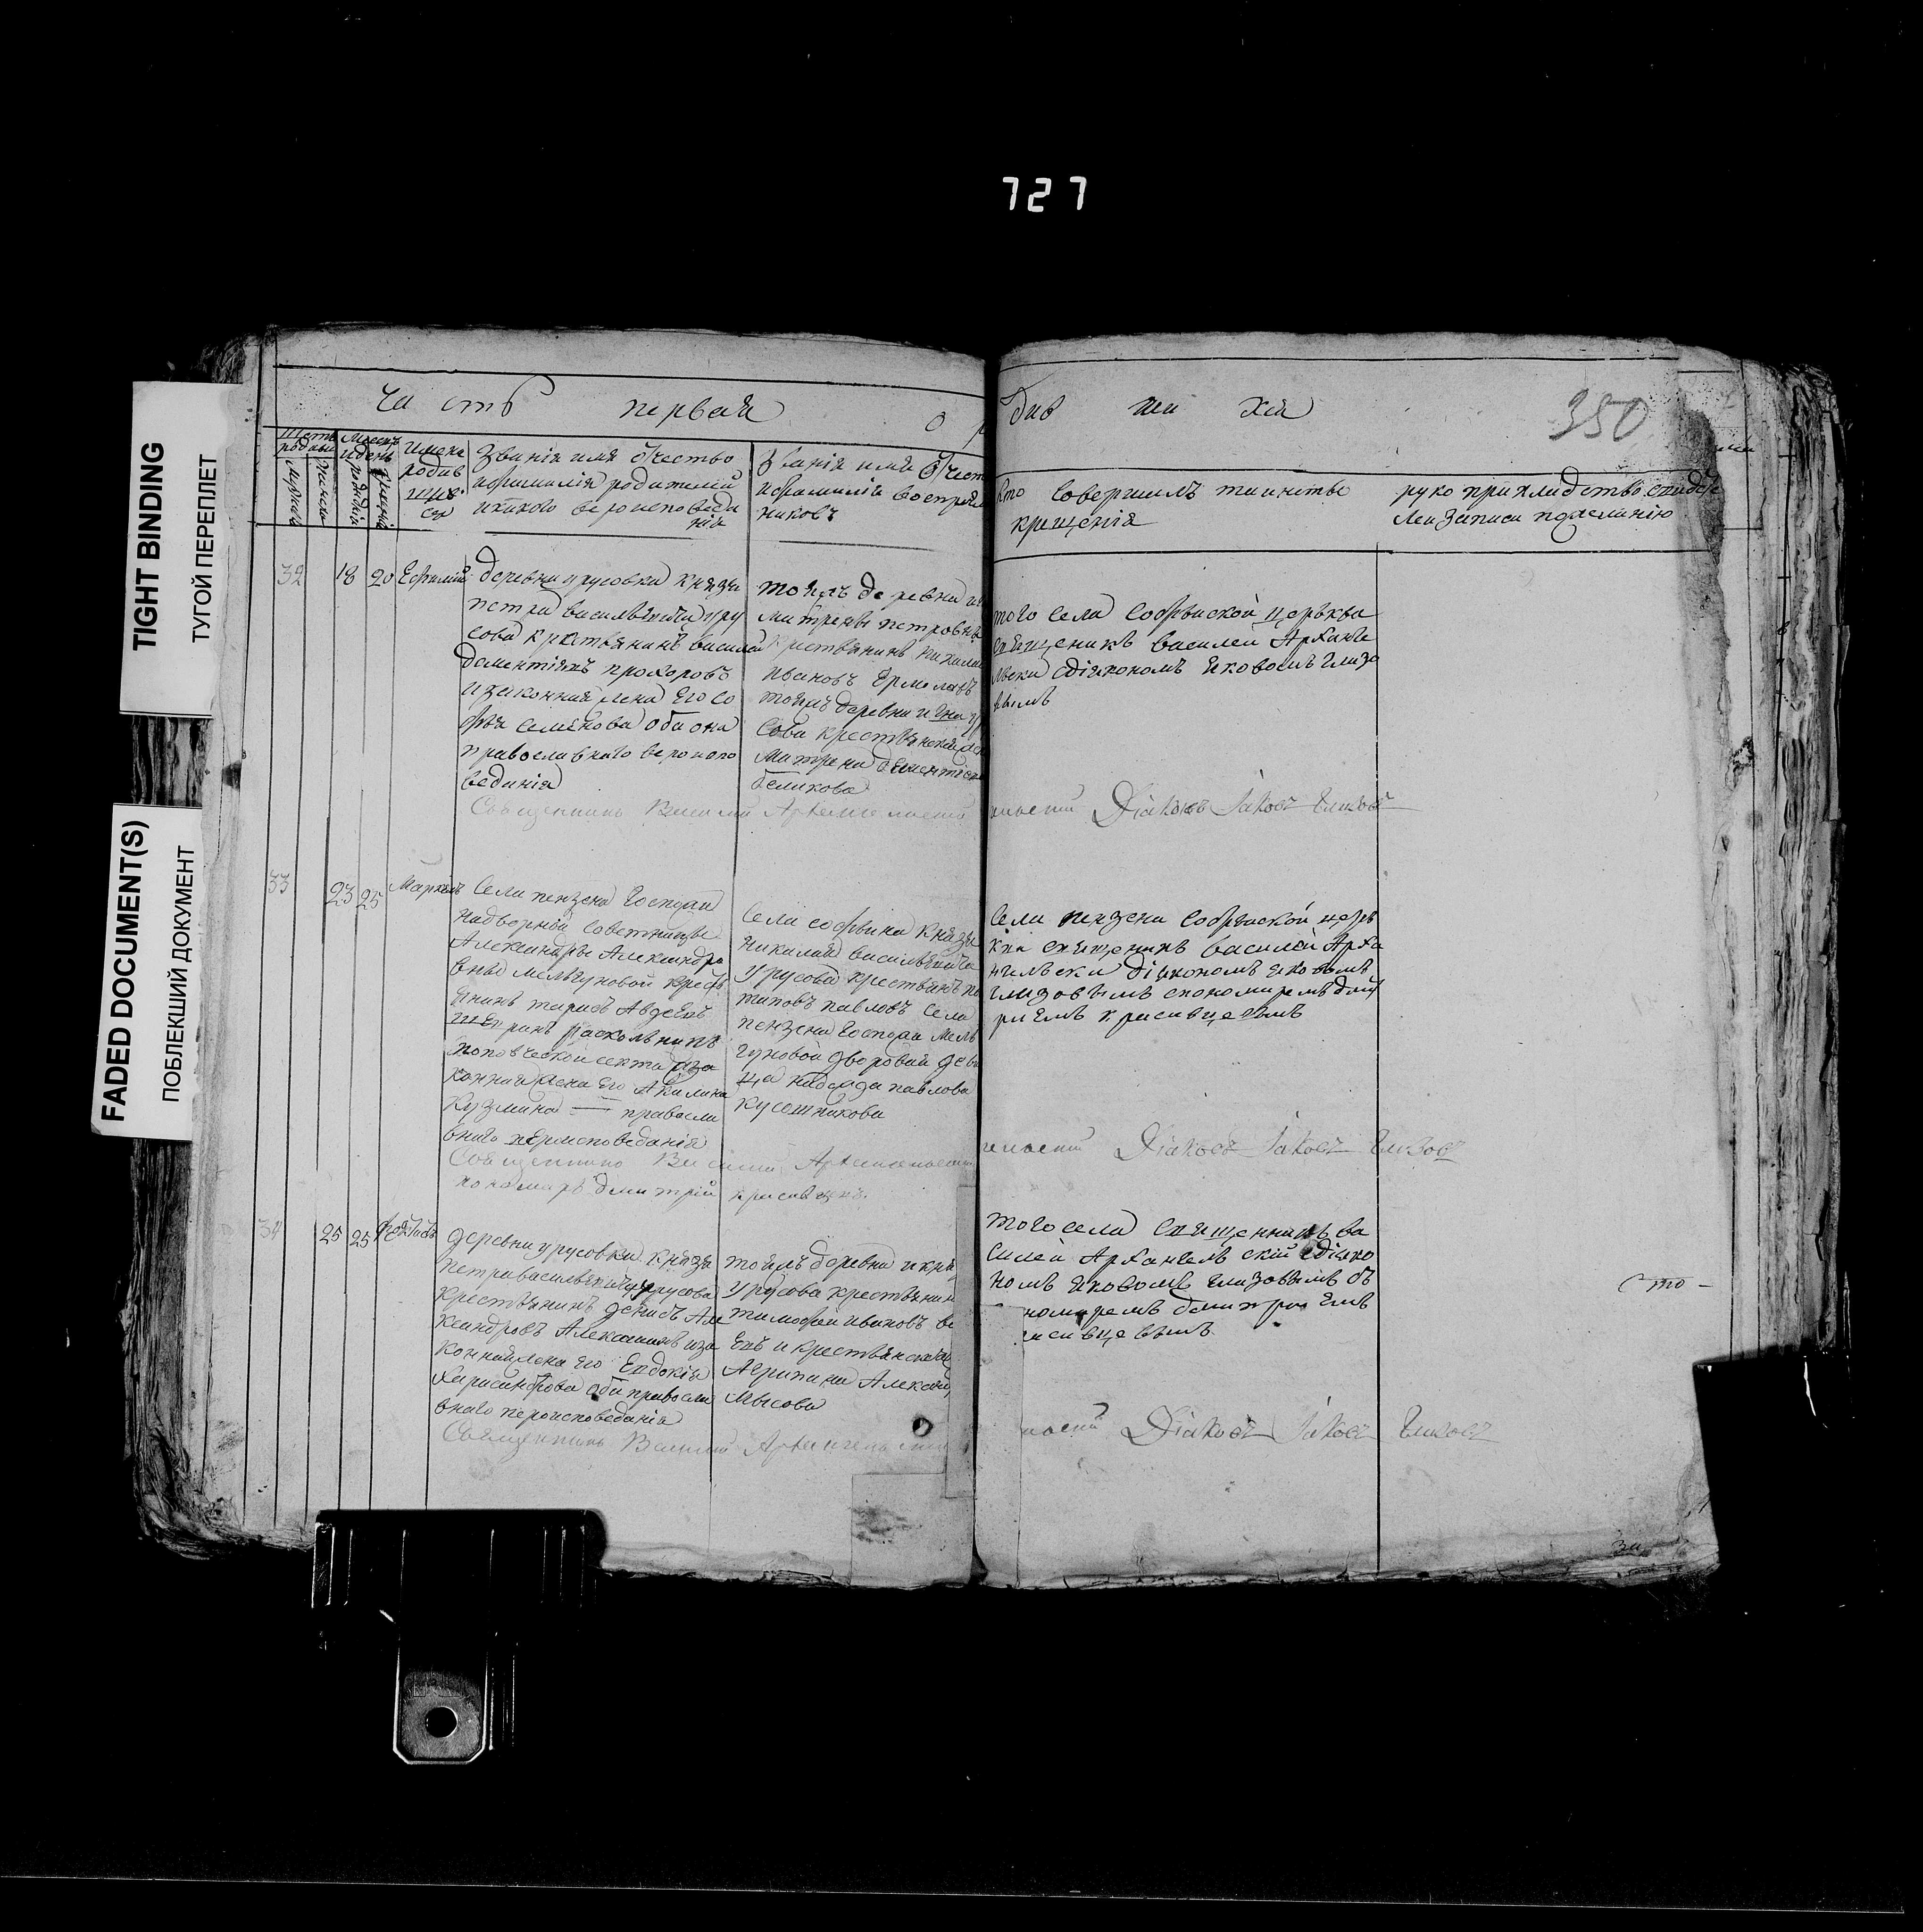 727
TIGHT BINDING
ТУГОЙ ПЕРЕПЛЕТ
FADED DOCUMENT(S)
ПОБЛЕКШИЙ ДОКУМЕНТ
Часть первая
о р
див ши хся
350
имена
родив
ших
ся
званія имя отчество
ифамилія родителей
икаково вероисповеда
нія
званія имя отчест
ифамилія воспрiем
никовъ
Кто совершилъ таинство
крещенія
руко прикладство свидете
лей записи пожеланію
32 18 20 Ефимій
деревни урусовки князя
петра васильевича уру
сова крестьянинъ василей
дементіевъ прохоровъ
изаконная жена его со
фья семенова оба она
православнаго вероиспо
веданія
тойжъ деревни
матрены петровны
крестьянинъ
ивановъ ермолаевъ
тойжъ деревни
сова крестьянская
матрена дементіева
беликова
того села софьиской церькви
священикъ василей Арханге
льски сдіякономъ яковомъ Глизо
вымъ
Священникъ Василий Архангельский
Діаконъ Іаковъ Глизовъ
33 23 25 Маркелъ
села пензена госпожи
надворной советницы
Александры Александро
вны мельгуновой кресть
янинъ тарасъ Авдеевъ
раскольникъ
поповческой секты иза
конная жена его Акилина
Кузмина — правосла
внаго вероисповеданія
села софьина князя
николая васильевича
урусова крестьянъ
павловъ села
пензена госпожи мель
гуновой дворовая деви
ца надежда павлова
кусотникова
села пензена софьиской церь
кви священикъ василей Арха
нгельски діякономъ яковомъ
Глизовымъ спономаремъ дмит
ріемъ красавцевымъ
Священникъ Василий Архангельский
Діаконъ Іаковъ Глизовъ
пономарь дмитрій красавцевъ
34 25 25
деревни урусовки князя
петра васильевича урусова
крестьянинъ денисъ Але
ксандровъ Алексашинъ иза
конная жена его Евдокія
Харисанфова оба правосла
внаго вероисповеданія
тойжъ деревни икня
урусова крестьянин
тимофей ивановъ
евъ и крестьянская
Агрипина Александ
мысова
того села священникъ ва
силей Архангельскій сдіяко
номъ яковомъ Глизовымъ съ
номаремъ дмитриемъ
савцевымъ
Священникъ Василий Архангельский
Діаконъ Іаковъ Глизовъ
сто